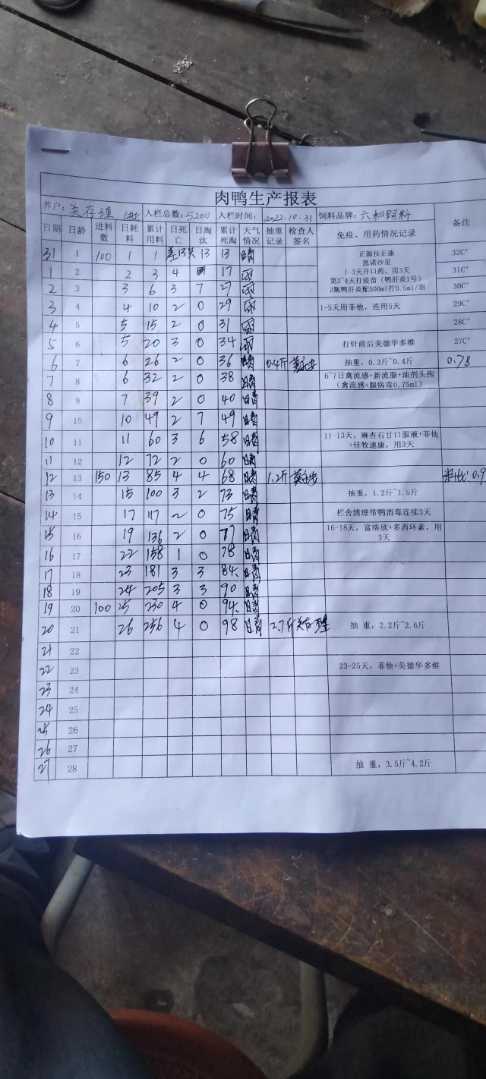 肉鸭生产报表
养户: 入栏总数:5200 入栏时间:2022.10.31 饲料品牌:六和饲料 备注
日期 日龄 进料数 日耗料 累计用料 日死亡 日淘汰 累计死淘 天气情况 抽重记录 检查人签名 免疫、用药情况记录
31 1 100 1 1 13 13 晴 32C°
1 2 2 3 4 17 雨 1-3天开口药,用3天 31C°
2 3 3 6 3 7 27 雨 30C°
3 4 4 10 2 0 29 雨 1-5天用菲怡,连用5天 29C°
4 5 5 15 2 0 31 雨 28C°
5 6 5 20 3 0 34 雨 打针前后美德华多维 27C°
6 7 6 26 2 0 36 晴 0.4斤 抽重,0.3斤~0.4斤
7 8 6 32 2 0 38 晴 6~7日禽流感+新流腺+油剂头孢(禽流感+腺病毒0.75ml)
8 9 7 39 2 0 40 晴
9 10 10 49 2 7 49 晴
10 11 11 60 3 6 58 晴 11-13天,麻杏石甘口服液+菲怡+佳牧速康,用3天
11 12 12 72 2 0 60 晴
12 13 150 13 85 4 4 68 晴 1.2斤
13 14 15 100 3 2 73 晴 抽重,1.2斤~1.5斤
14 15 17 117 2 0 75 晴 栏舍清理带鸭消毒连续3天
15 16 19 136 2 0 77 晴 16-18天,富络欣+多西环素,用3天
16 17 22 158 1 0 78 晴
17 18 23 181 3 3 84 晴
18 19 24 205 3 3 90 晴
19 20 100 25 230 4 0 94 晴
20 21 26 256 4 0 98 晴 2.7斤 抽重,2.2斤~2.6斤
21 22
22 23 23-25天,菲怡+美德华多维
23 24
24 25
25 26
26 27
27 28 抽重,3.5斤~4.2斤